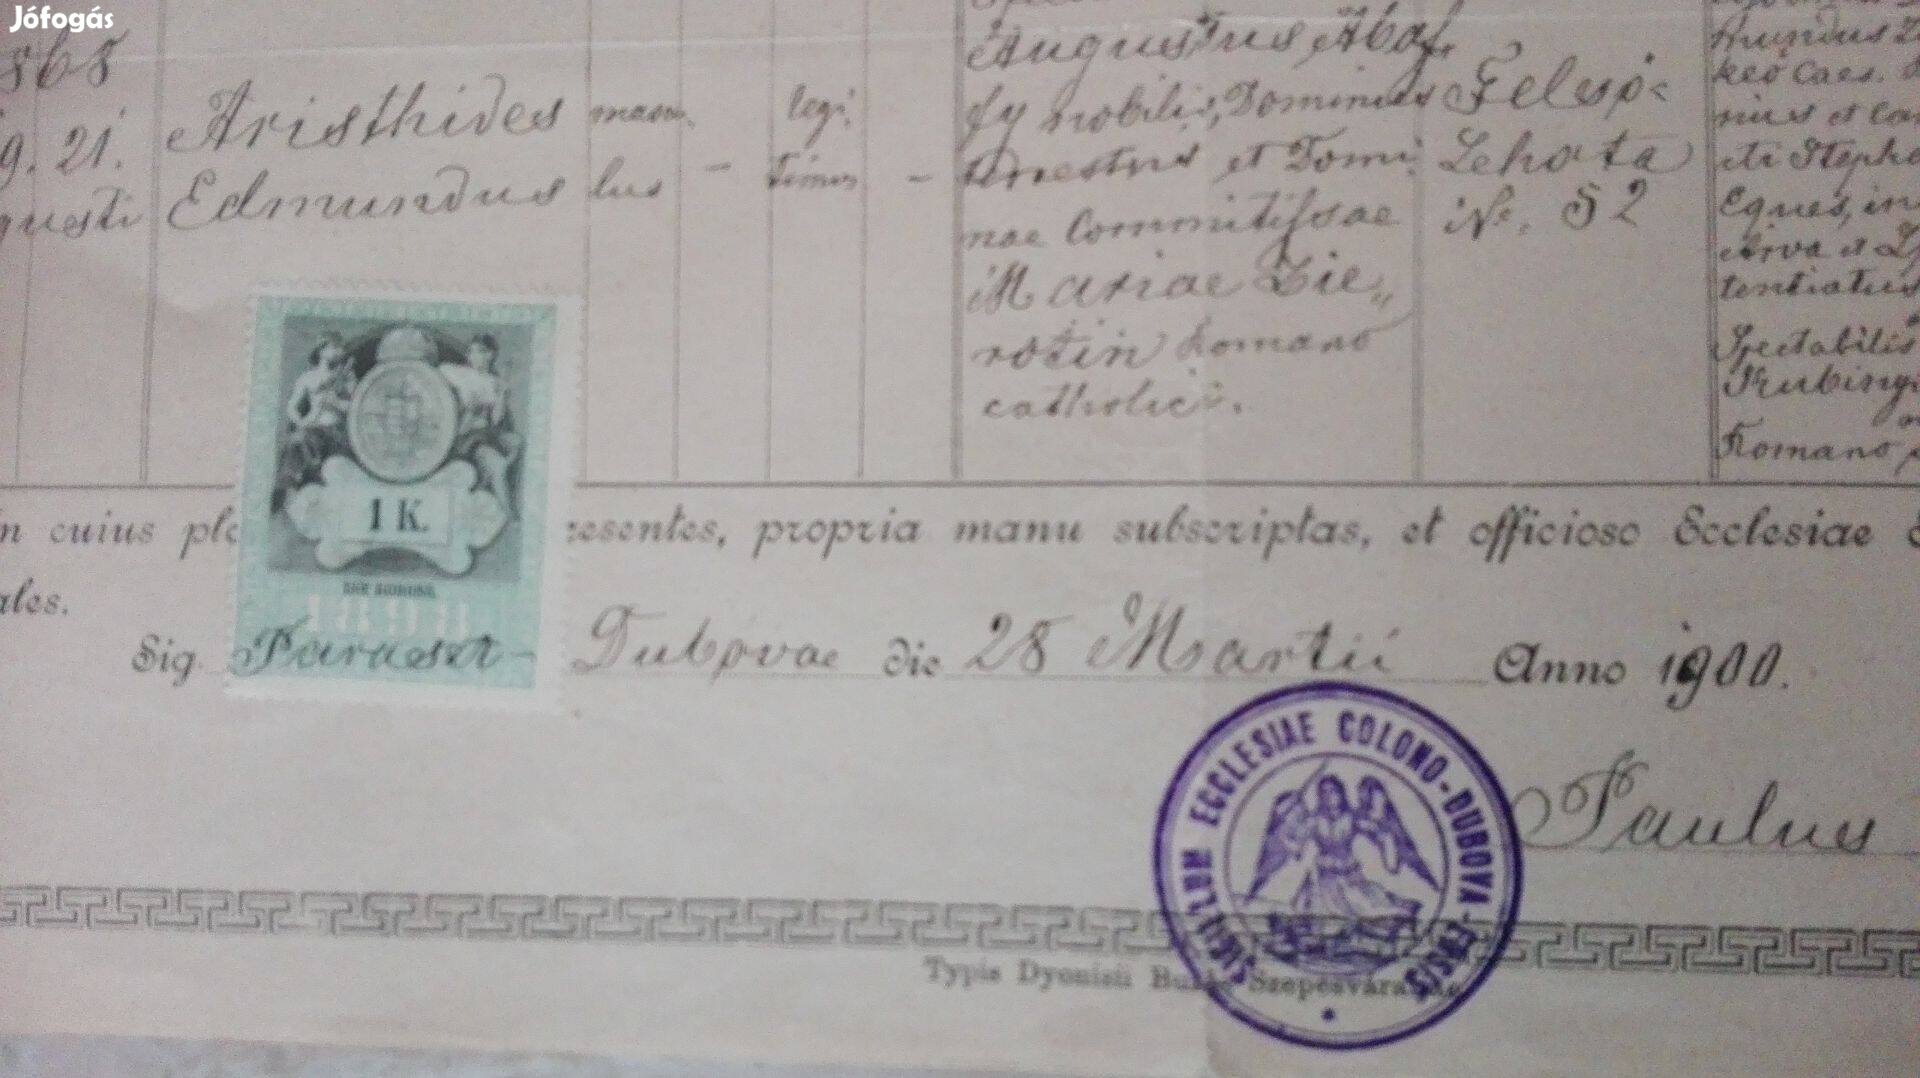 Jófogás
868
9. 21.
gusti
Aristhides
Edmundus
mascu-
lus
–
legi
timus
–
Augustus Abaf
fy nobilis, Dominus
terrestris et Domi
nae Commitissae
Mariae Zie„
rotin Romano
catholici.
Felsó-
Lehota
No. 52
keo Caes.
eti Steph
Eques, in
Arva et
tentiatus
Spectabilis
Kubinyi
Romano
n cuius ple
resentes, propria manu subscriptas, et officioso Ecclesiae
ales.
Sig. Paraeszt-Dubovae die 28 Martii Anno 1900.
1 K.
EGY KORONA.
1898
SIGILLUM ECCLESIAE COLONO-DUBOVA-ENSIS
Paulus
Typis Dyonisii Szepesvára